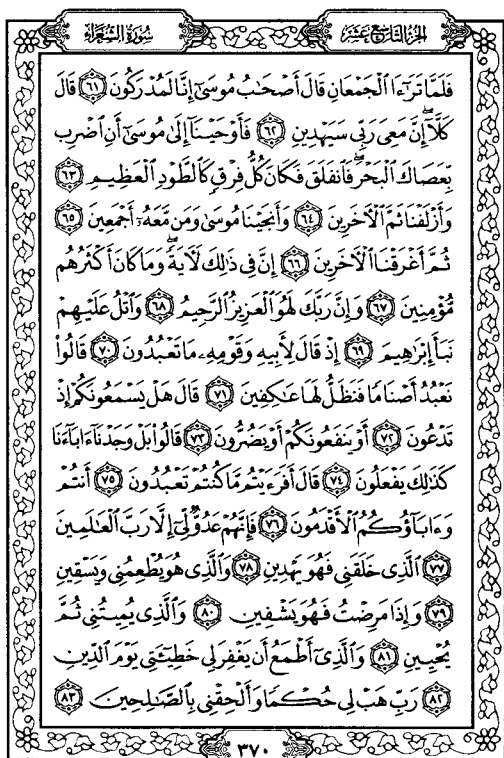 سُورَةُ الشُّعَرَاءِ
الجُزءُ التَّاسِعَ عَشَرَ
فَلَمَّا تَرَٰٓءَا ٱلْجَمْعَانِ قَالَ أَصْحَٰبُ مُوسَىٰٓ إِنَّا لَمُدْرَكُونَ ٦١ قَالَ
كَلَّآ ۖ إِنَّ مَعِىَ رَبِّى سَيَهْدِينِ ٦٢ فَأَوْحَيْنَآ إِلَىٰ مُوسَىٰٓ أَنِ ٱضْرِب
بِّعَصَاكَ ٱلْبَحْرَ ۖ فَٱنفَلَقَ فَكَانَ كُلُّ فِرْقٍ كَٱلطَّوْدِ ٱلْعَظِيمِ ٦٣
وَأَزْلَفْنَا ثَمَّ ٱلْـَٔاخَرِينَ ٦٤ وَأَنجَيْنَا مُوسَىٰ وَمَن مَّعَهُۥٓ أَجْمَعِينَ ٦٥
ثُمَّ أَغْرَقْنَا ٱلْـَٔاخَرِينَ ٦٦ إِنَّ فِى ذَٰلِكَ لَـَٔايَةً ۖ وَمَا كَانَ أَكْثَرُهُم
مُّؤْمِنِينَ ٦٧ وَإِنَّ رَبَّكَ لَهُوَ ٱلْعَزِيزُ ٱلرَّحِيمُ ٦٨ وَٱتْلُ عَلَيْهِمْ
نَبَأَ إِبْرَٰهِيمَ ٦٩ إِذْ قَالَ لِأَبِيهِ وَقَوْمِهِۦ مَا تَعْبُدُونَ ٧٠ قَالُوا۟
نَعْبُدُ أَصْنَامًا فَنَظَلُّ لَهَا عَٰكِفِينَ ٧١ قَالَ هَلْ يَسْمَعُونَكُمْ إِذْ
تَدْعُونَ ٧٢ أَوْ يَنفَعُونَكُمْ أَوْ يَضُرُّونَ ٧٣ قَالُوا۟ بَلْ وَجَدْنَآ ءَابَآءَنَا
كَذَٰلِكَ يَفْعَلُونَ ٧٤ قَالَ أَفَرَءَيْتُم مَّا كُنتُمْ تَعْبُدُونَ ٧٥ أَنتُمْ
وَءَابَآؤُكُمُ ٱلْأَقْدَمُونَ ٧٦ فَإِنَّهُمْ عَدُوٌّ لِّىٓ إِلَّا رَبَّ ٱلْعَٰلَمِينَ
٧٧ ٱلَّذِى خَلَقَنِى فَهُوَ يَهْدِينِ ٧٨ وَٱلَّذِى هُوَ يُطْعِمُنِى وَيَسْقِينِ
٧٩ وَإِذَا مَرِضْتُ فَهُوَ يَشْفِينِ ٨٠ وَٱلَّذِى يُمِيتُنِى ثُمَّ
يُحْيِينِ ٨١ وَٱلَّذِىٓ أَطْمَعُ أَن يَغْفِرَ لِى خَطِيٓـَٔتِى يَوْمَ ٱلدِّينِ
٨٢ رَبِّ هَبْ لِى حُكْمًا وَأَلْحِقْنِى بِٱلصَّٰلِحِينَ ٨٣
٣٧٠